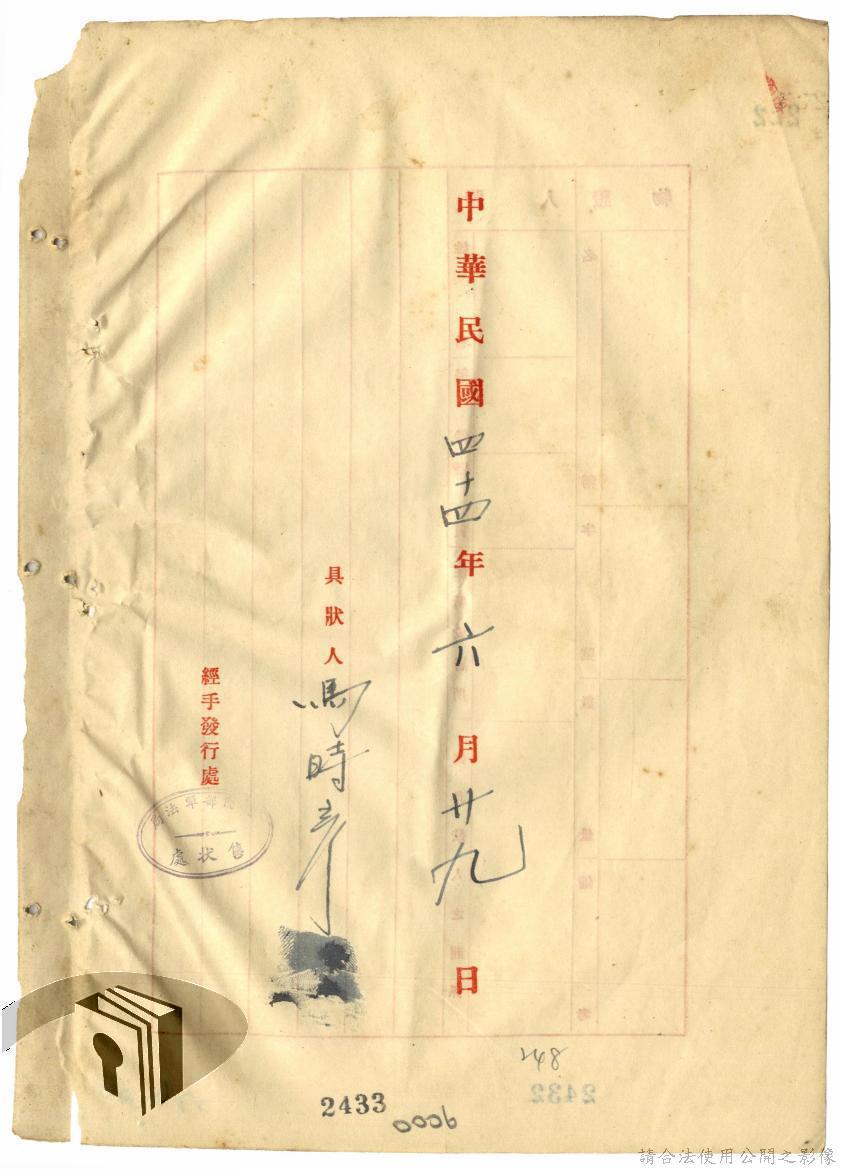 中華民國四十四年六月廿九日
具狀人 馬時彥
經手發行處
售狀處
248
2433
0006
2432
請合法使用公開之影像